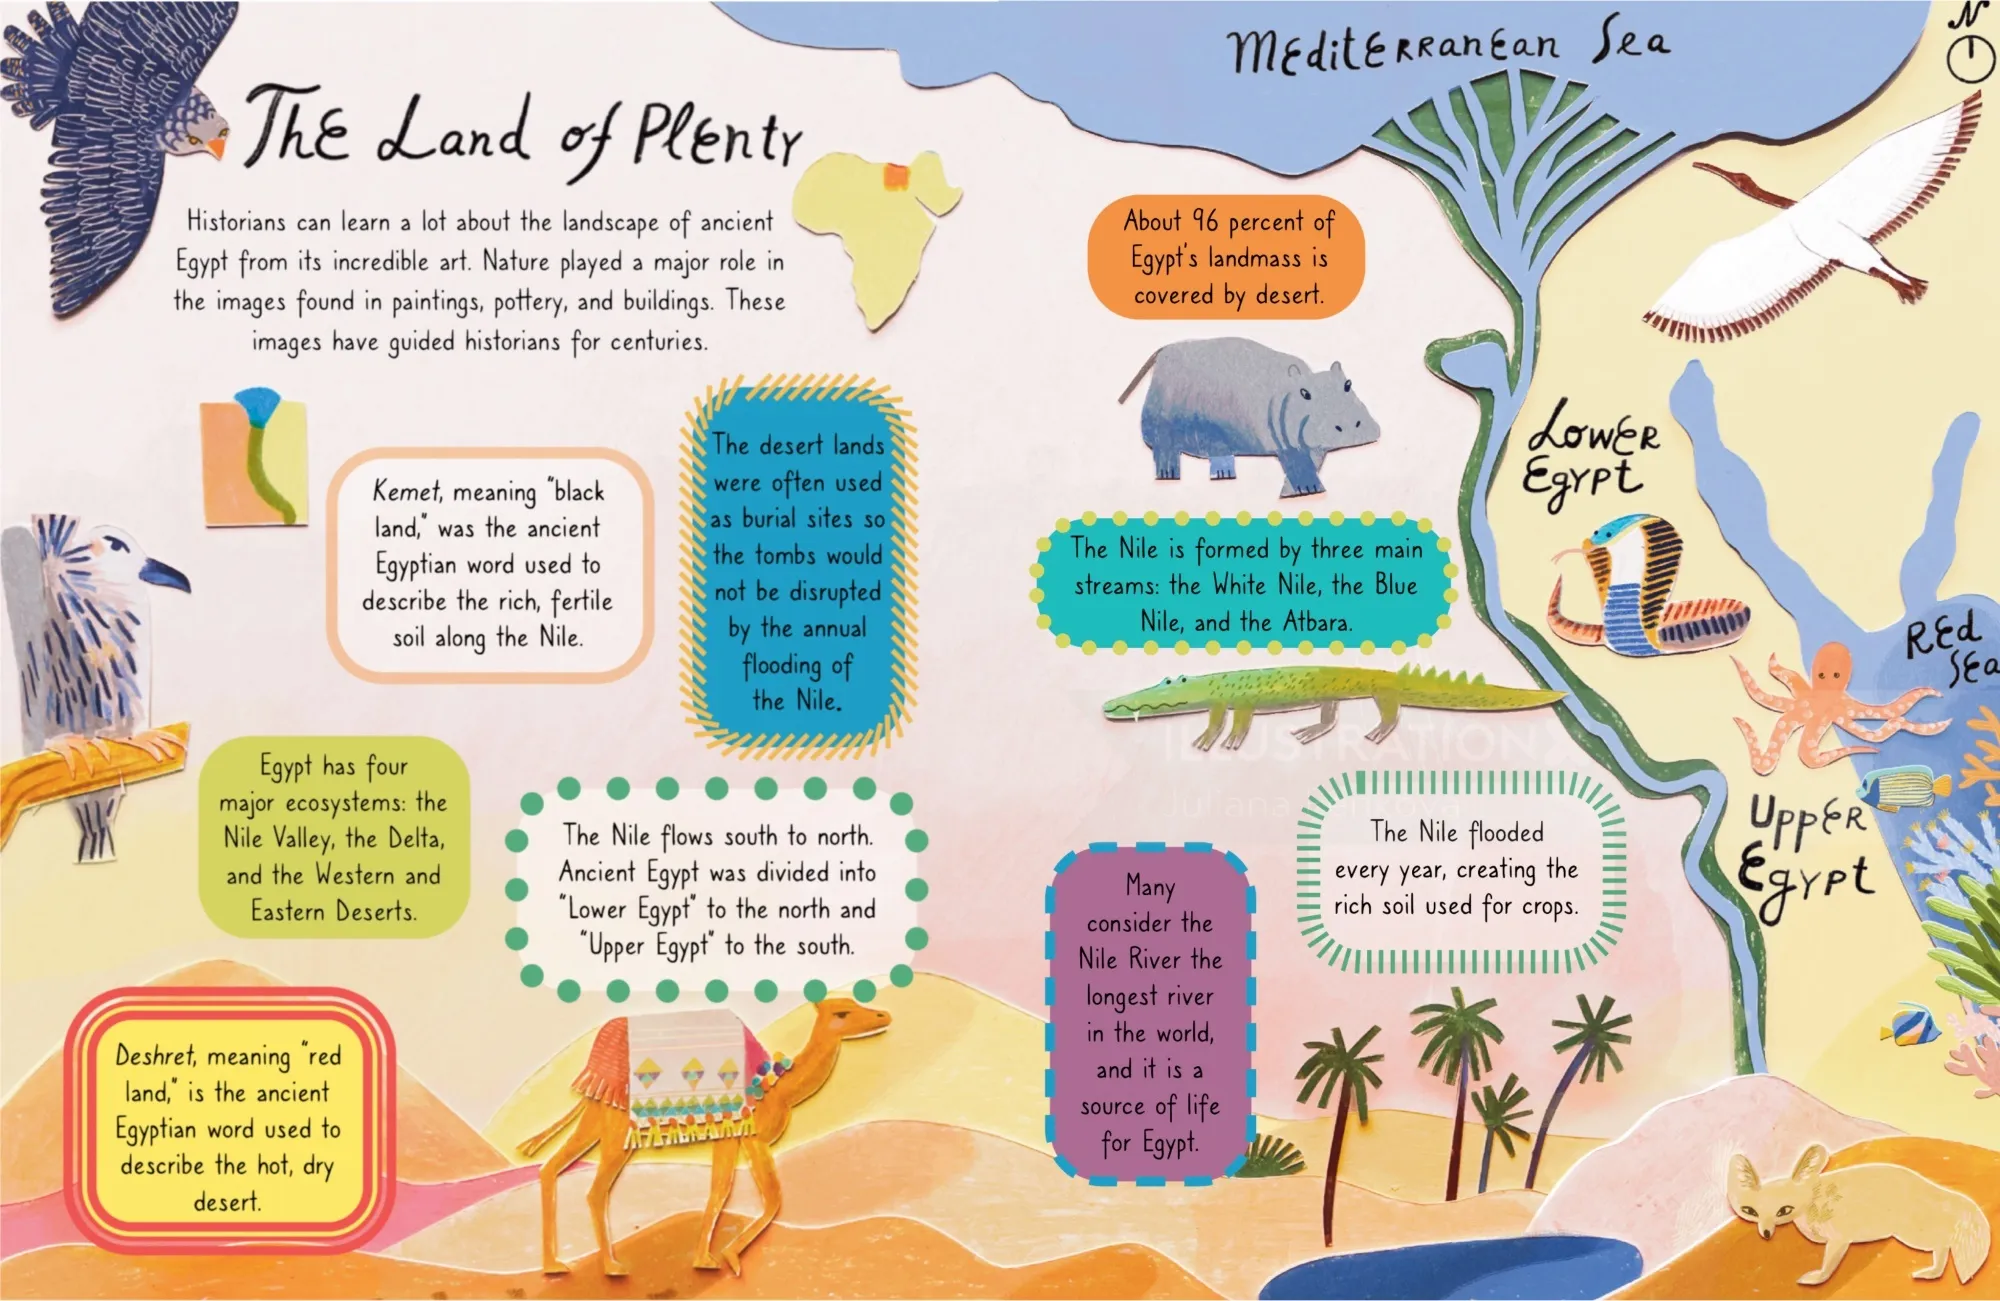 The Land of Plenty
Historians can learn a lot about the landscape of ancient
Egypt from its incredible art. Nature played a major role in
the images found in paintings, pottery, and buildings. These
images have guided historians for centuries.
Kemet, meaning "black
land," was the ancient
Egyptian word used to
describe the rich, fertile
soil along the Nile.
The desert lands
were often used
as burial sites so
the tombs would
not be disrupted
by the annual
flooding of
the Nile.
Egypt has four
major ecosystems: the
Nile Valley, the Delta,
and the Western and
Eastern Deserts.
The Nile flows south to north.
Ancient Egypt was divided into
"Lower Egypt" to the north and
"Upper Egypt" to the south.
Deshret, meaning "red
land," is the ancient
Egyptian word used to
describe the hot, dry
desert.
Mediterranean Sea
N
About 96 percent of
Egypt's landmass is
covered by desert.
Lower
Egypt
The Nile is formed by three main
streams: the White Nile, the Blue
Nile, and the Atbara.
Red
Sea
ILLUSTRATION
Juliana
Upper
Egypt
The Nile flooded
every year, creating the
rich soil used for crops.
Many
consider the
Nile River the
longest river
in the world,
and it is a
source of life
for Egypt.